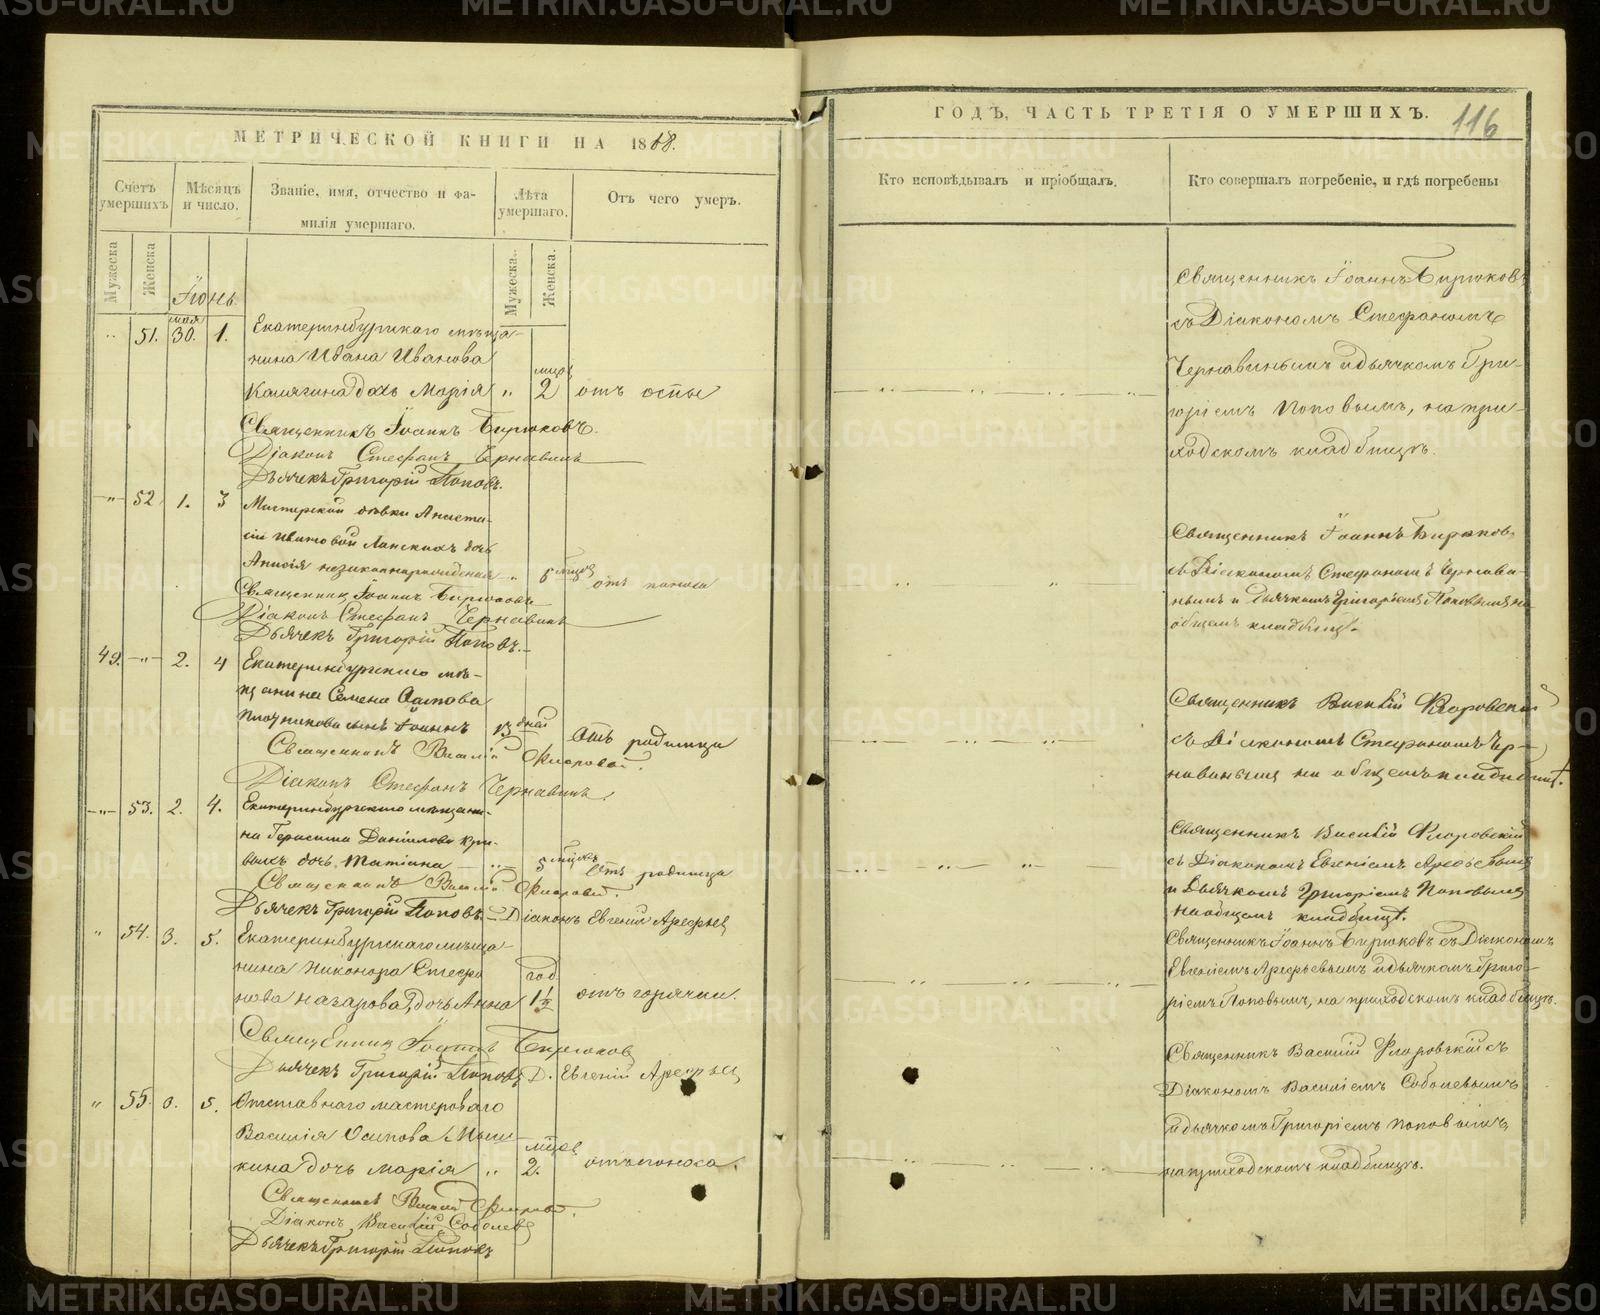 МЕТРИЧЕСКОЙ КНИГИ НА 1868.
Счетъ умершихъ
Мѣсяцъ и число.
Званіе, имя, отчество и фамилія умершаго.
Лѣта умершаго.
Отъ чего умеръ.
Мужеска
Женска
Мужеска.
Женска.
Іюнь
мая
51. 30. 1. Екатеринбургскаго мѣща-
нина Ивана Иванова
дочь Марія " 2 отъ оспы
Священникъ Іоаннъ Бирюковъ.
Діаконъ Стефанъ Чернавинъ
Дьячекъ Григорій Поповъ.
52 1. 3 Мастерской дѣвки Анаста-
дочь
незаконнорожденная 6 мцов отъ поноса
Священникъ Іоаннъ Бирюковъ
Діаконъ Стефанъ Чернавинъ
Дьячекъ Григорій Поповъ.
49. 2. 4 Екатеринбургскаго мѣ-
щанина Семена
Плотникова сынъ Іоаннъ 13 дней Отъ родимца
Священникъ Василій Флоровскій.
Діаконъ Стефанъ Чернавинъ.
53. 2. 4. Екатеринбургскаго мѣщани-
на Герасима Данілова Кри-
выхъ дочь Татіана 5 мцовъ Отъ родимца
Священникъ Василій Флоровскій.
Дьячекъ Григорій Поповъ. Діаконъ Евгеній Арефьев
" 54. 3. 5. Екатеринбургскаго мѣща-
нина Никонора Стефа
нова Назарова, дочь Анна год 1 1/2 отъ горячки.
Священник Іоаннъ Бирюков
Дьячекъ Григорій Поповъ Д. Евгеній Арефьев
" 55. 5. Отставнаго мастероваго
Василія Осипова
кина дочь Марія " 2. отъ поноса.
Священникъ Василій
Діаконъ Василій Соболев
Дьячекъ Григорій Поповъ
ГОДЪ, ЧАСТЬ ТРЕТІЯ О УМЕРШИХЪ.
116
Кто исповѣдывалъ и пріобщалъ.
Кто совершалъ погребеніе, и гдѣ погребены
Священникъ Іоаннъ Бирюковъ
съ Діакономъ Стефаномъ
Чернавинымъ и дьячкомъ Гри-
горіемъ Поповымъ, на при-
ходскомъ кладбищѣ.
Священникъ Іоаннъ Бирюковъ
съ Діакономъ Стефаномъ Чернави-
нымъ и Дьячкомъ Григоріемъ Поповымъ на
общемъ кладбищѣ.
Священникъ Василій Флоровскій
съ Діакономъ Стефаномъ Чер-
навинымъ на общемъ кладбищѣ.
Священникъ Василій Флоровскій
съ Діакономъ Евгеніемъ Арефьевымъ
и Дьячкомъ Григоріемъ Поповымъ
на общемъ кладбищѣ.
Священникъ Іоаннъ Бирюковъ съ Діакономъ
Евгеніемъ Арефьевымъ и дьячкомъ Григо-
ріемъ Поповымъ, на приходскомъ кладбищѣ.
Священникъ Василій Флоровскій съ
Діакономъ Василіемъ Соболевымъ
и дьячкомъ Григоріемъ Поповымъ
на приходскомъ кладбищѣ.
METRIKI.GASO-URAL.RU